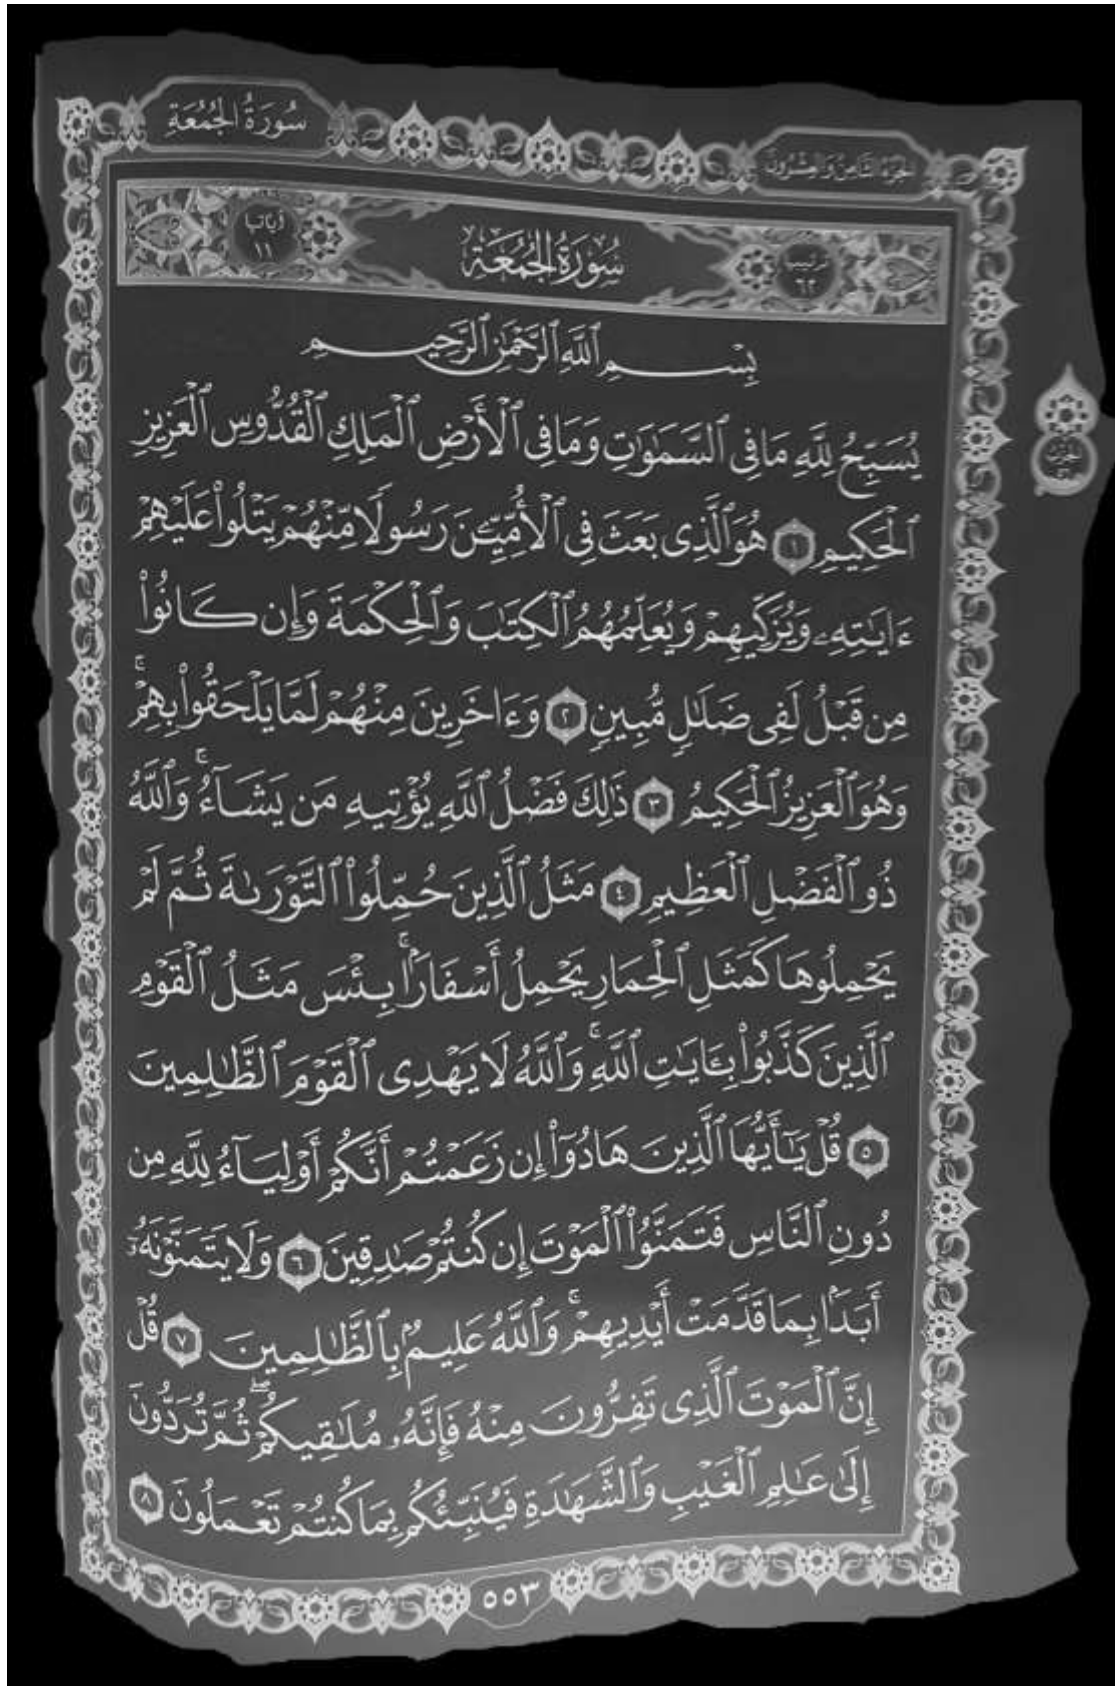 الجزء الثامن والعشرون
سُورَةُ الجُمُعَةِ
ترتيبها ٦٢
سُورَةُ الجُمُعَةِ
آياتها ١١
بِسْمِ ٱللَّهِ ٱلرَّحْمَٰنِ ٱلرَّحِيمِ
يُسَبِّحُ لِلَّهِ مَا فِى ٱلسَّمَٰوَٰتِ وَمَا فِى ٱلْأَرْضِ ٱلْمَلِكِ ٱلْقُدُّوسِ ٱلْعَزِيزِ
ٱلْحَكِيمِ ١ هُوَ ٱلَّذِى بَعَثَ فِى ٱلْأُمِّيِّـۧنَ رَسُولًا مِّنْهُمْ يَتْلُوا۟ عَلَيْهِمْ
ءَايَٰتِهِۦ وَيُزَكِّيهِمْ وَيُعَلِّمُهُمُ ٱلْكِتَٰبَ وَٱلْحِكْمَةَ وَإِن كَانُوا۟
مِن قَبْلُ لَفِى ضَلَٰلٍ مُّبِينٍ ٢ وَءَاخَرِينَ مِنْهُمْ لَمَّا يَلْحَقُوا۟ بِهِمْ ۚ
وَهُوَ ٱلْعَزِيزُ ٱلْحَكِيمُ ٣ ذَٰلِكَ فَضْلُ ٱللَّهِ يُؤْتِيهِ مَن يَشَآءُ ۚ وَٱللَّهُ
ذُو ٱلْفَضْلِ ٱلْعَظِيمِ ٤ مَثَلُ ٱلَّذِينَ حُمِّلُوا۟ ٱلتَّوْرَىٰةَ ثُمَّ لَمْ
يَحْمِلُوهَا كَمَثَلِ ٱلْحِمَارِ يَحْمِلُ أَسْفَارًۢا ۚ بِئْسَ مَثَلُ ٱلْقَوْمِ
ٱلَّذِينَ كَذَّبُوا۟ بِـَٔايَٰتِ ٱللَّهِ ۚ وَٱللَّهُ لَا يَهْدِى ٱلْقَوْمَ ٱلظَّٰلِمِينَ
٥ قُلْ يَٰٓأَيُّهَا ٱلَّذِينَ هَادُوٓا۟ إِن زَعَمْتُمْ أَنَّكُمْ أَوْلِيَآءُ لِلَّهِ مِن
دُونِ ٱلنَّاسِ فَتَمَنَّوُا۟ ٱلْمَوْتَ إِن كُنتُمْ صَٰدِقِينَ ٦ وَلَا يَتَمَنَّوْنَهُۥٓ
أَبَدًۢا بِمَا قَدَّمَتْ أَيْدِيهِمْ ۚ وَٱللَّهُ عَلِيمٌۢ بِٱلظَّٰلِمِينَ ٧ قُلْ
إِنَّ ٱلْمَوْتَ ٱلَّذِى تَفِرُّونَ مِنْهُ فَإِنَّهُۥ مُلَٰقِيكُمْ ۖ ثُمَّ تُرَدُّونَ
إِلَىٰ عَٰلِمِ ٱلْغَيْبِ وَٱلشَّهَٰدَةِ فَيُنَبِّئُكُم بِمَا كُنتُمْ تَعْمَلُونَ ٨
٥٥٣